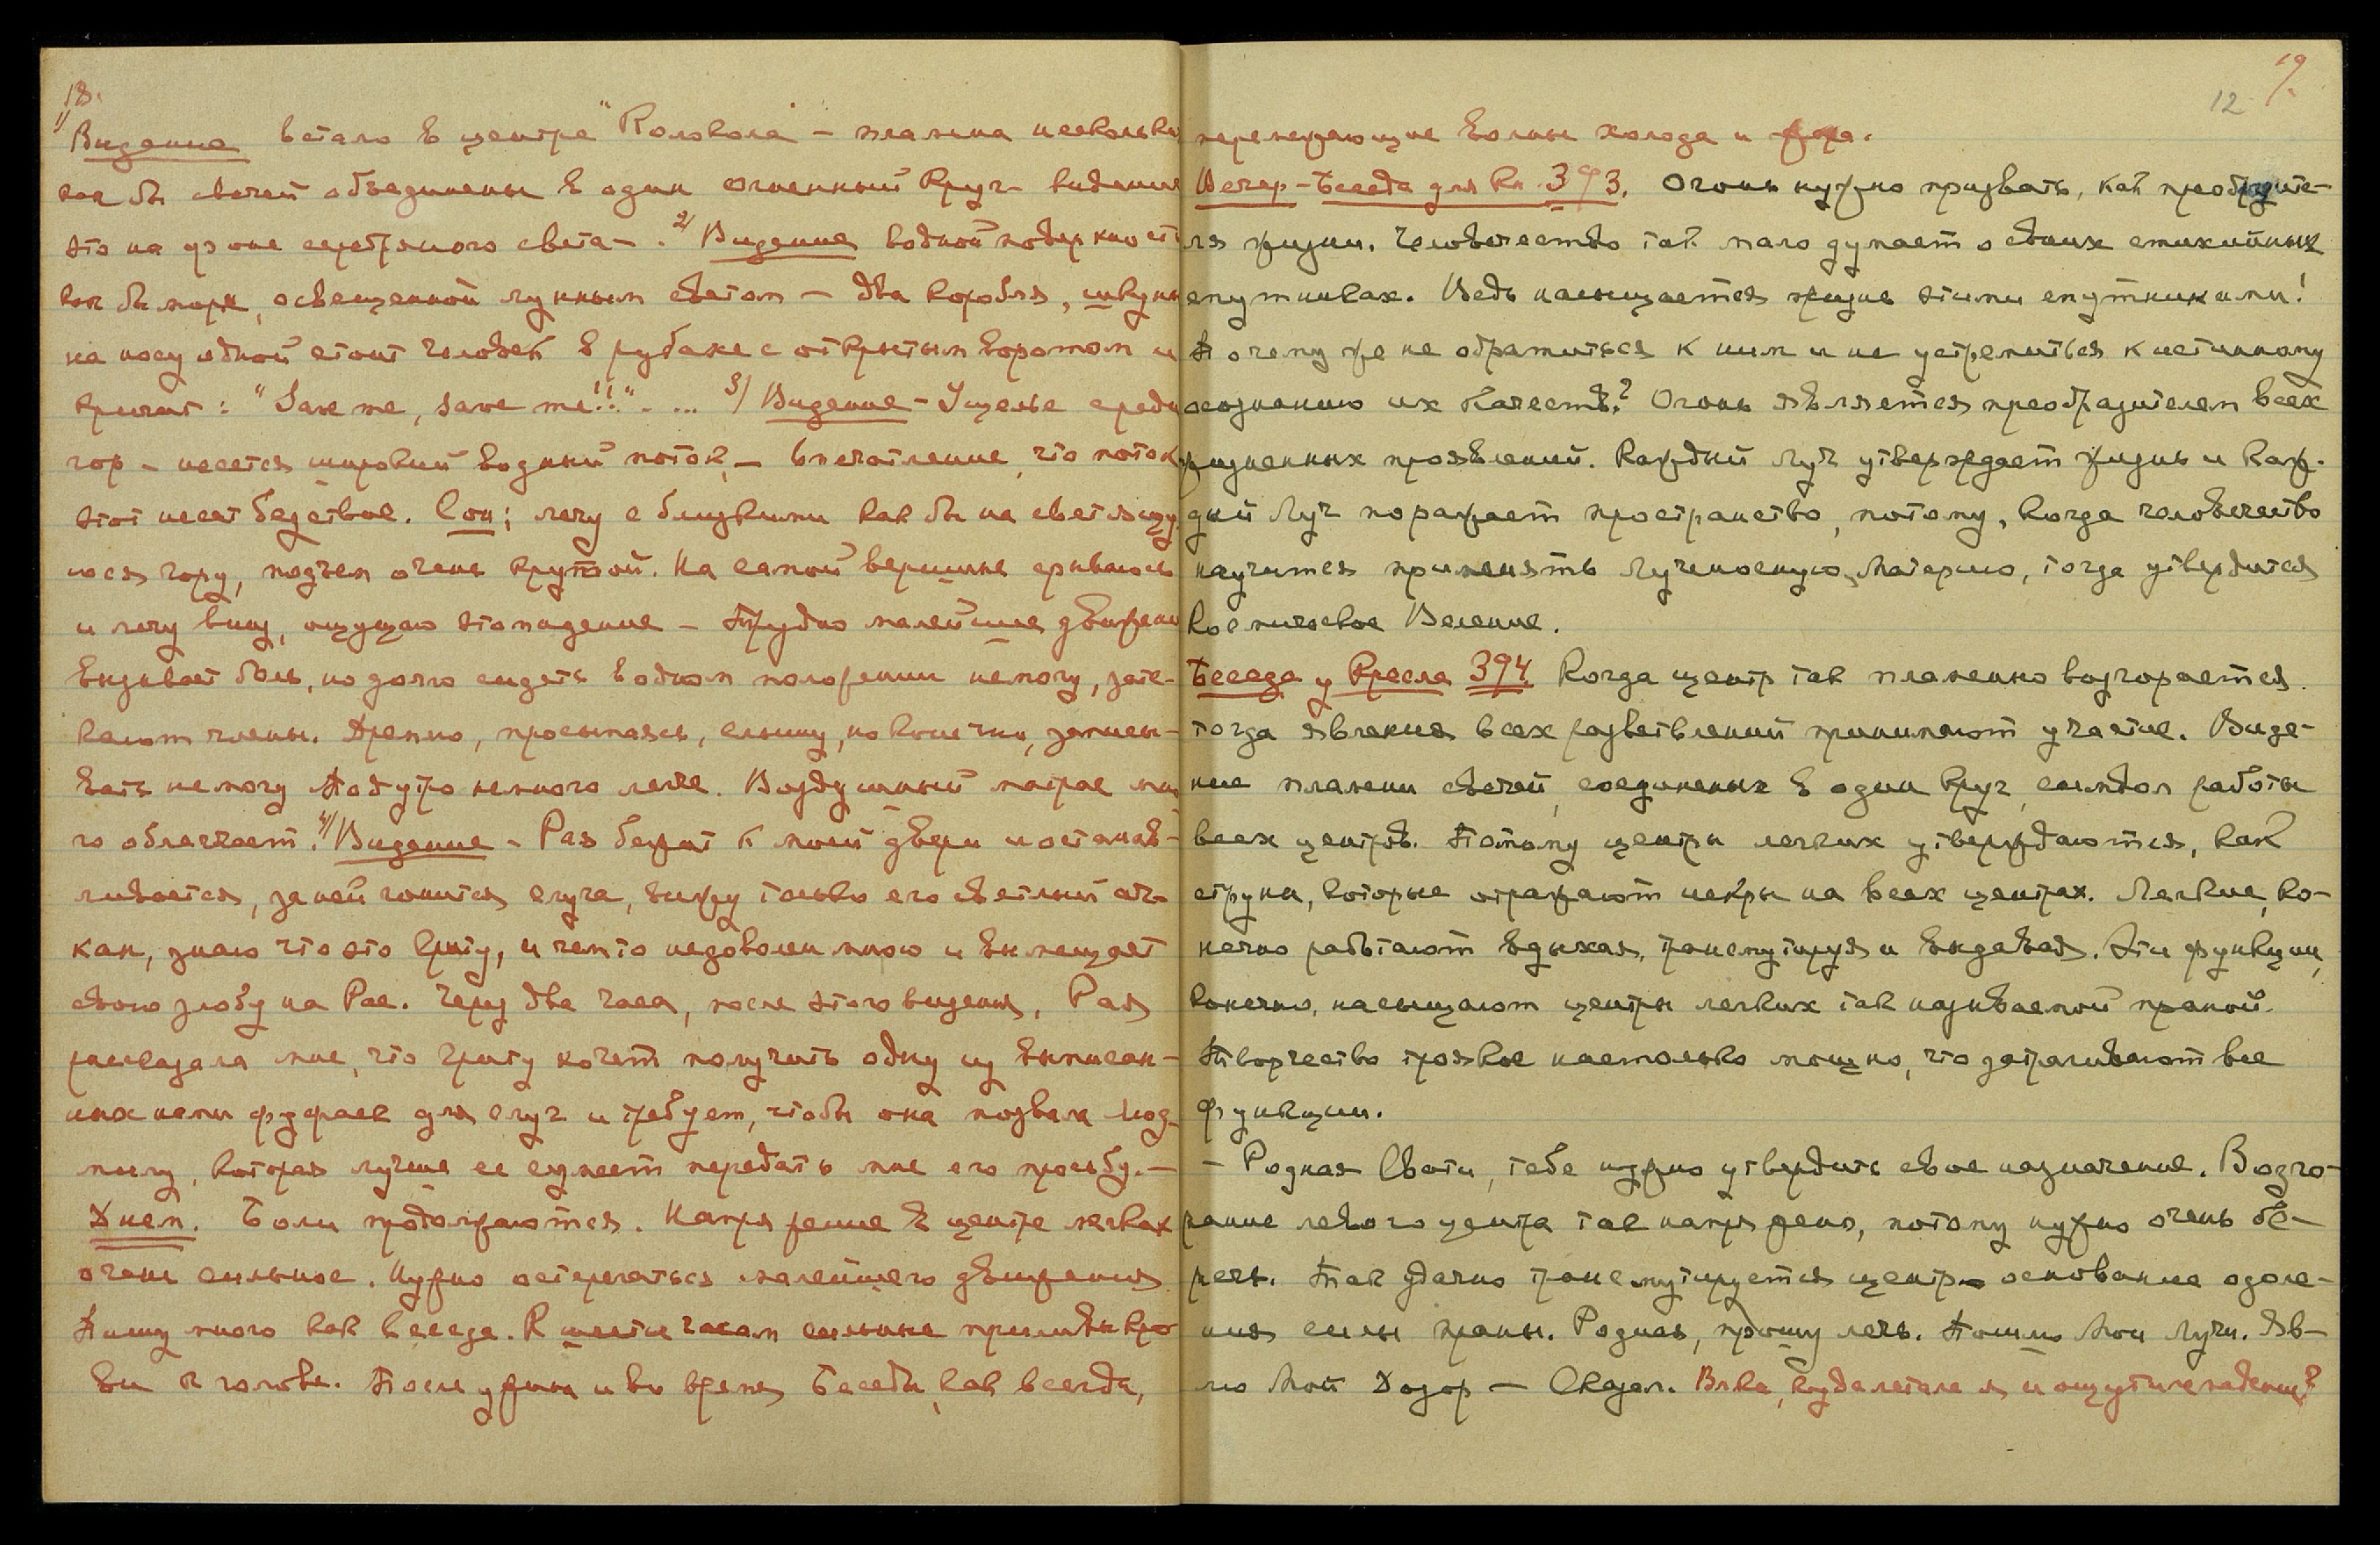 18.
1/ Видение встало в центре "Колокола" – пламина несколько
как бы свечей объединены в один огненный круг – видение
это на фоне серебряного света –. 2/ Видение водной поверхности
как бы моря, освещенной лунным светом – два корабля, шкуны
на носу одной стоит человек в рубахе с открытым воротом и
кричит: "Save me, save me!!". ... 3/ Видение – Ущелье среди
гор – несется широкий водный поток, – впечатление, что поток
этот несет бедствие. Сон; лечу с близкими как бы на светящу-
юся гору, подъем очень крутой. На самой вершине срываюсь
и лечу вниз, ощущаю это падение – Трудно малейшее движение
вызывает боль, но долго сидеть в одном положении не могу, зате-
кают члены. Дремлю, просыпаясь, слышу, но конечно, записы-
вать не могу Под утро немного легче. Воздушный матрас мно-
го облегчает. 4/ Видение – Рая бежит к моей двери и останав-
ливается, за ней гонится слуга, вижу только его светлый
кан, знаю что это Криту, и чем то недоволен мною и вымещает
свою злобу на Рае. Через два часа, после этого видения, Рая
рассказала мне, что Криту хочет получить одну из выписан-
ных нами фуфаек для слуг и требует, чтобы она позвала Люд-
милу, которая лучше ее сумеет передать мне его просьбу. –
Днем. Боли продолжаются. Напряжение в центре легких
очень сильное. Нужно остерегаться малейшего движения
Пишу много как всегда. К шести часам сильные приливы кро-
ви к голове. После ужина и во время Беседы, как всегда,
19.
12
перемежающие волны холода и жара.
Вечер – Беседа для Кн. 393. Огонь нужно призвать, как преобразите-
ля жизни. Человечество так мало думает о своих стихийных
спутниках. Ведь насыщается жизнь этими спутниками!
Почему же не обратиться к ним и не устремиться к истинному
осознанию их качеств? Огонь является преобразителем всех
жизненных проявлений. Каждый Луч утверждает жизнь и каж-
дый Луч поражает пространство, потому, когда человечество
научится применять Лученосную Материю, тогда утвердится
Космическое Веление.
Беседа у Кресла 394 Когда центр так пламенно возгорается
тогда явления всех разветвлений принимают участие. Виде-
ние пламени свечей, соединенных в один круг, символ работы
всех центров. Потому центры легких утверждаются, как
струны, которые отражают искры на всех центрах. Легкие, ко-
нечно работают вдыхая, трансмутируя и выдавая. Эти функции,
конечно, насыщают центры легких так называемой праной.
Творчество троякое настолько мощно, что затрагивают все
функции.
– Родная Свати, тебе нужно утвердить свое назначение. Возго-
рание левого центра так напряжено, потому нужно очень бе-
речь. Так удачно трансмутируется центр – основание одоле-
ния силы праны. Родная, прошу лечь. Пошлю Мои Лучи. Яв-
лю Мой Дозор – Сказал. Влка, куда летала я и ощутила падение?